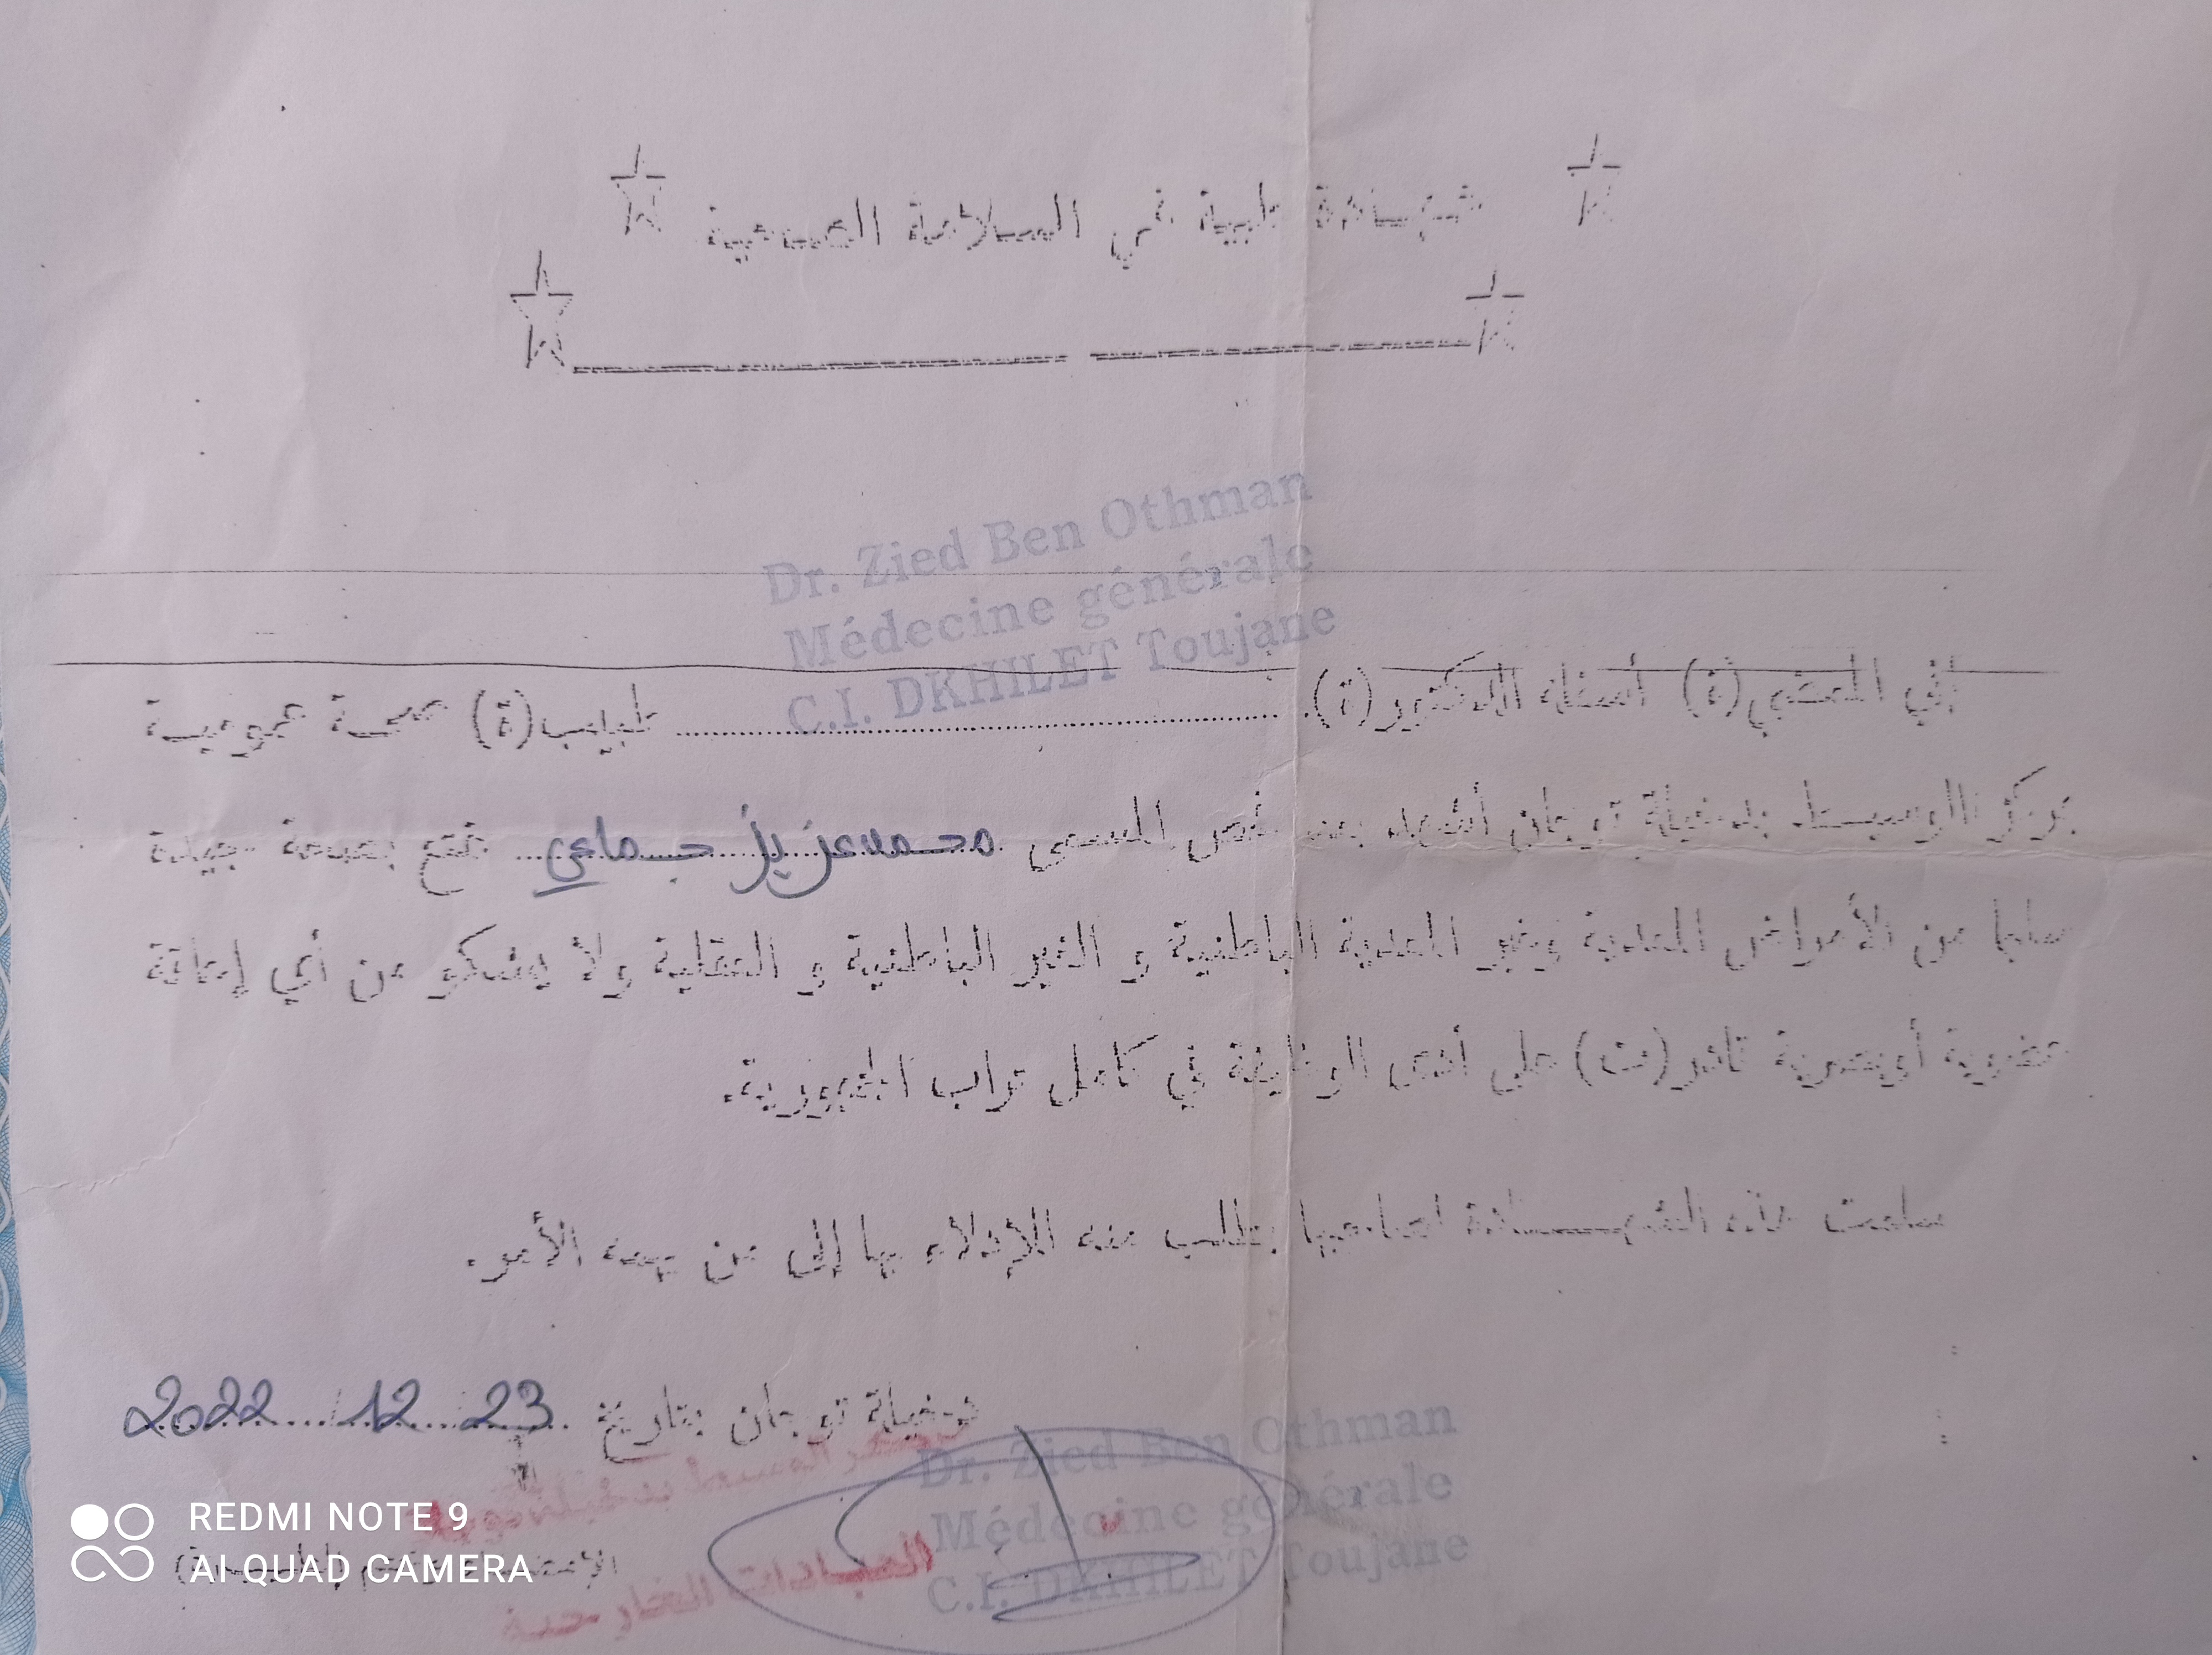 شهادة طبية في السلامة الصحية
Dr. Zied Ben Othman
Médecine générale
C.I. DKHILET Toujane
إني الممضي(ة) أسفله الدكتور(ة). طبيب(ة) صحة عمومية
بمركز الوسيط بدخيلة توجان أشهد بعد فحص المسمى محمد عزيز جماعي تمتع بصحة جيدة
سليما من الأمراض المعدية وغير المعدية الباطنية و الغير الباطنية و العقلية ولا يشكو من أي إعاقة
عضوية أوبصرية قادر(ت) على أدى الوظيفة في كامل تراب الجمهورية.
سلمت هذه الشهادة لصاحبها بطلب منه للإدلاء بها إلى من يهمه الأمر.
دخيلة توجان بتاريخ 23 12 2022
Dr. Zied Ben Othman
Médecine générale
C.I. DKHILET Toujane
العيادات الخارجية
REDMI NOTE 9
AI QUAD CAMERA